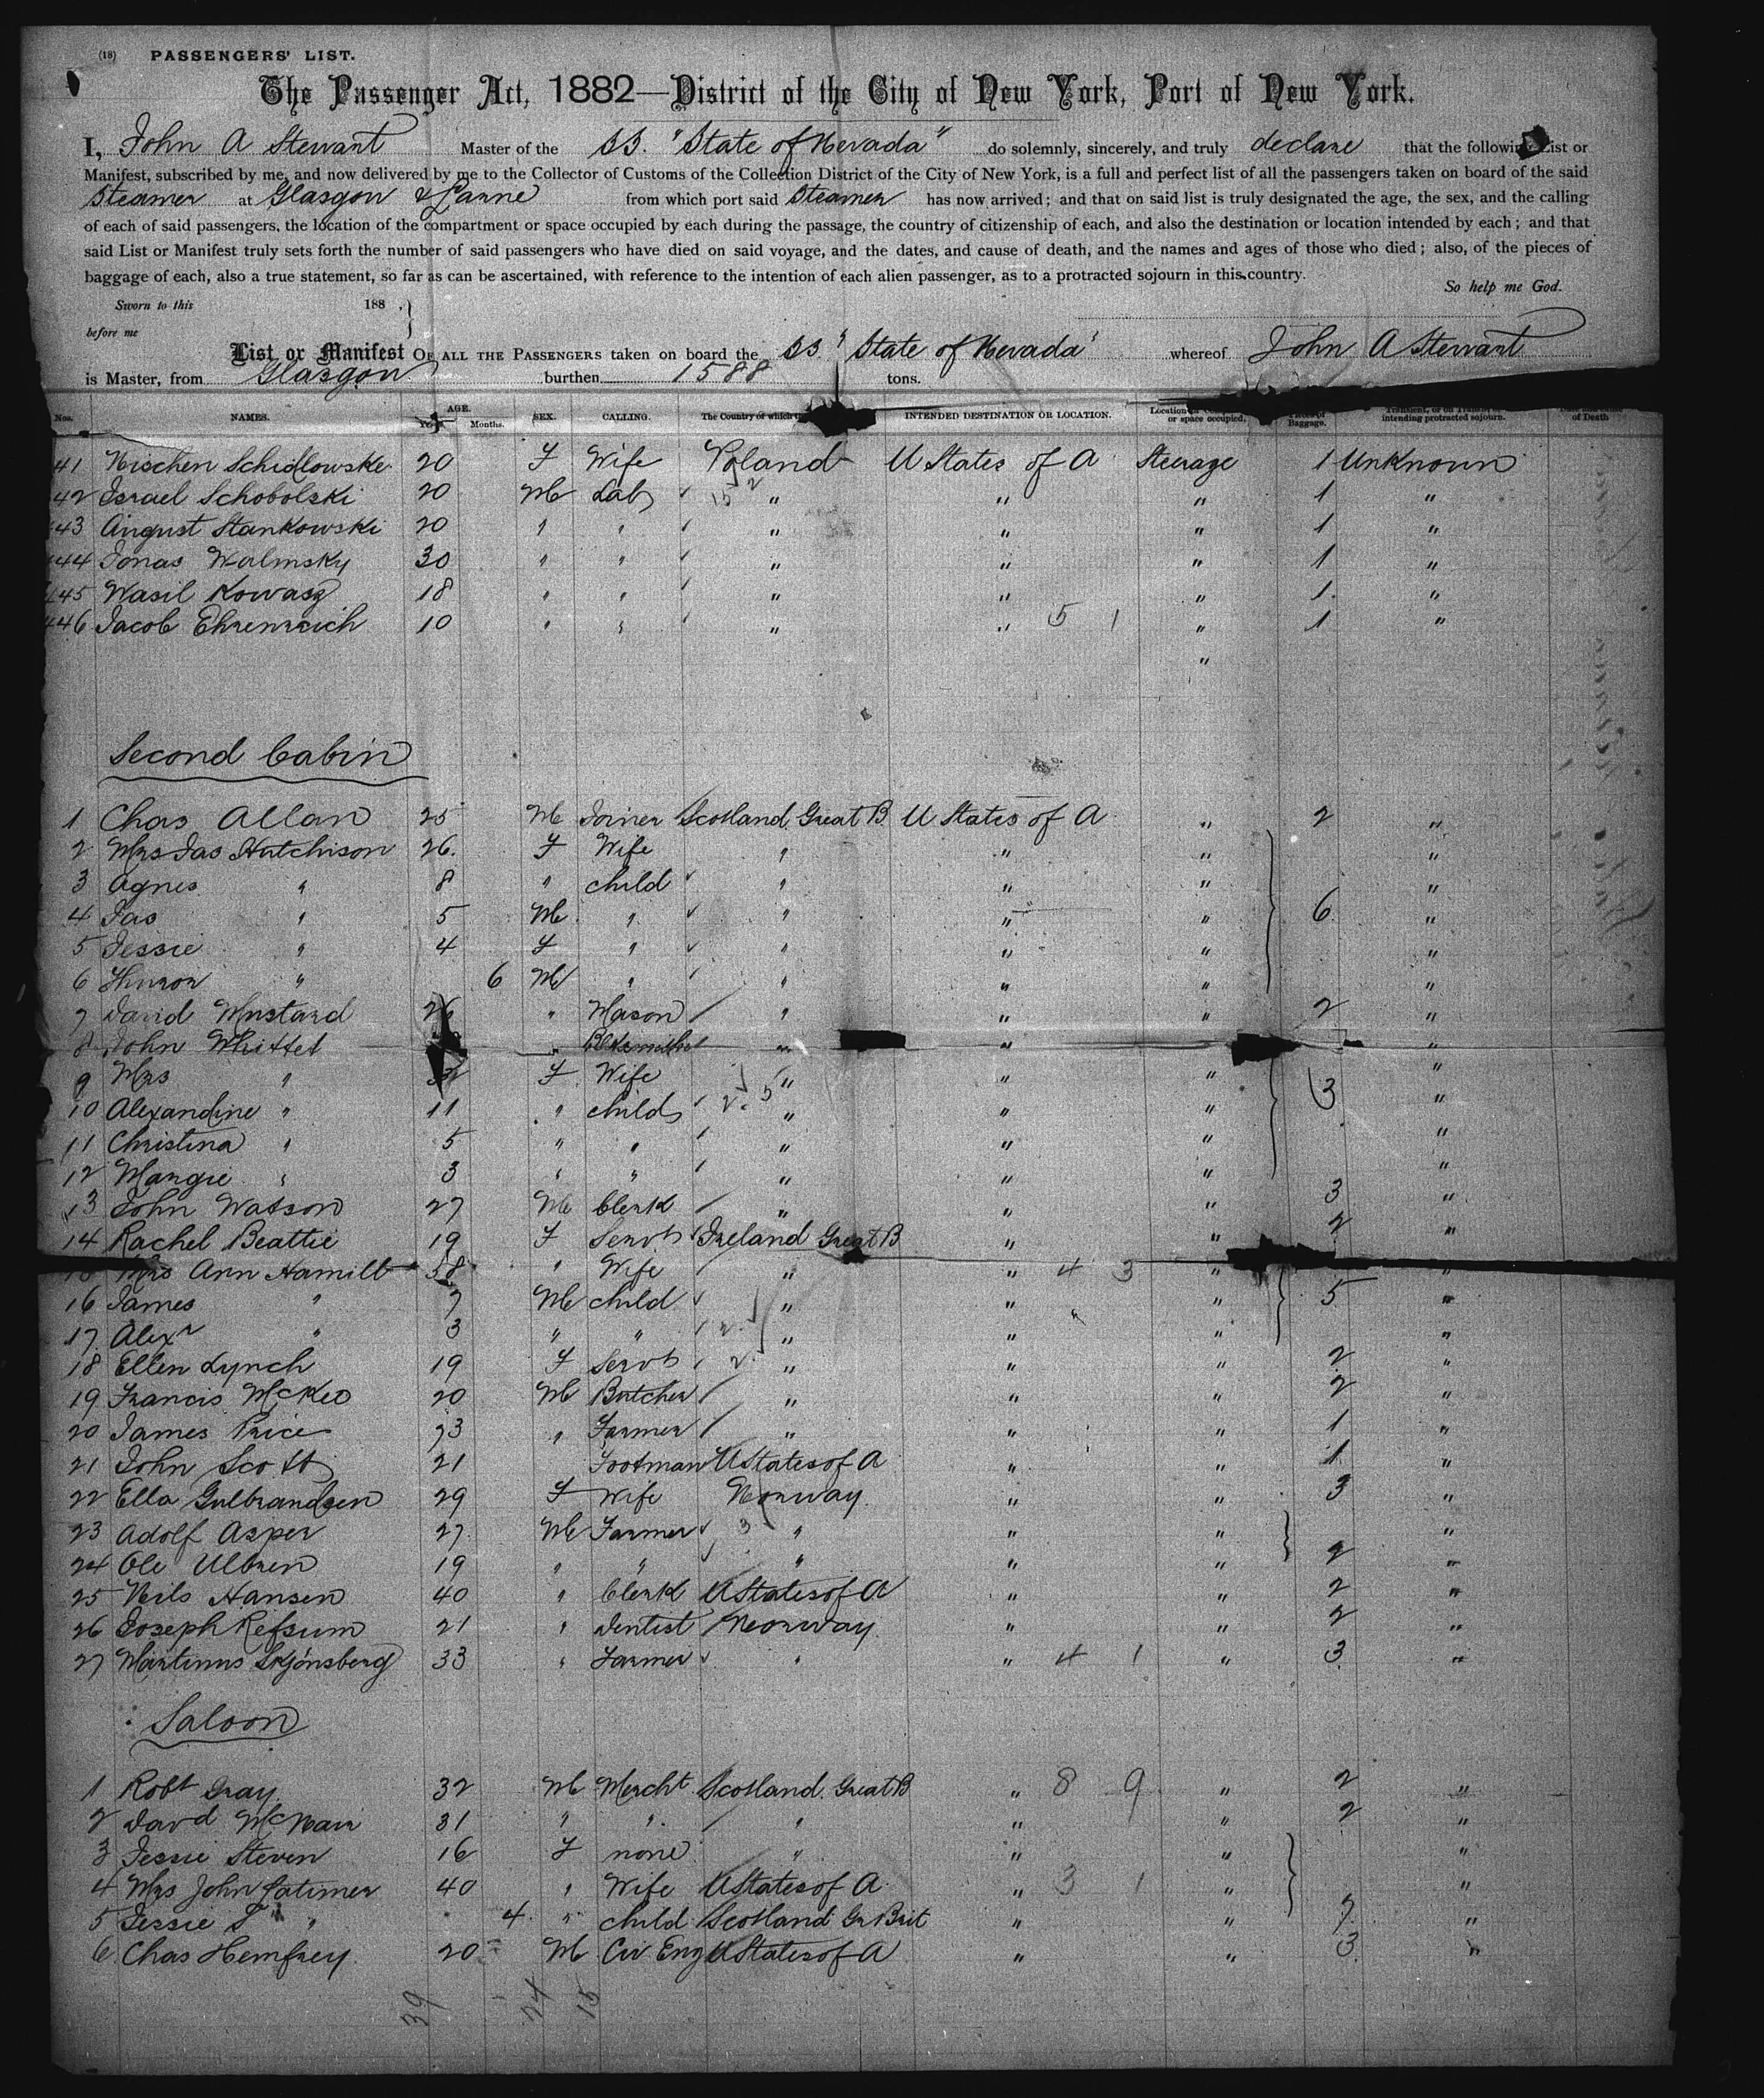 (18) PASSENGERS' LIST.
The Passenger Act, 1882—District of the City of New York, Port of New York.
I, John A Stewart Master of the SS. "State of Nevada" do solemnly, sincerely, and truly declare that the following List or
Manifest, subscribed by me, and now delivered by me to the Collector of Customs of the Collection District of the City of New York, is a full and perfect list of all the passengers taken on board of the said
Steamer at Glasgow & Larne from which port said Steamer has now arrived; and that on said list is truly designated the age, the sex, and the calling
of each of said passengers, the location of the compartment or space occupied by each during the passage, the country of citizenship of each, and also the destination or location intended by each; and that
said List or Manifest truly sets forth the number of said passengers who have died on said voyage, and the dates, and cause of death, and the names and ages of those who died; also, of the pieces of
baggage of each, also a true statement, so far as can be ascertained, with reference to the intention of each alien passenger, as to a protracted sojourn in this country.
So help me God.
Sworn to this 188 .
before me
List or Manifest OF ALL THE PASSENGERS taken on board the SS "State of Nevada" whereof John A Stewart
is Master, from Glasgow burthen 1588 tons.
Nos. NAMES. AGE. Months. SEX. CALLING. The Country of which INTENDED DESTINATION OR LOCATION. Location or space occupied. Baggage. intending protracted sojourn. of Death
41 Nischen Schidlowske 20 F Wife Poland U States of A Steerage 1 Unknown
42 Israel Schobolski 20 M Lab " " " 1 "
443 August Stankowski 20 " " " " " 1 "
444 Jonas Walmsky 30 " " " " " 1 "
445 Wasil Kowasz 18 " " " " " 1 "
446 Jacob Ehrenreich 10 " " " " 5 1 " 1 "
"
Second Cabin
1 Chas Allan 25 M Joiner Scotland Great B U States of A " 2 "
2 Mrs Jas Hutchison 26 F Wife " " " "
3 Agnes " 8 " child " " " "
4 Jas " 5 M " " " " 6 "
5 Jessie " 4 F " " " " "
6 " 6 M " " " " "
7 David Mustard 26 " Mason " " " 2 "
8 John Whittet " " " "
9 Mrs " F Wife " " " 3 "
10 Alexandine " 11 " child " " " "
11 Christina " 5 " " " " " "
12 Margie " 3 " " " " " "
13 John Watson 27 M Clerk " " " 3 "
14 Rachel Beattie 19 F Servt Ireland Great B " " 2 "
Mrs Ann Hamill 38 " Wife " " 4 3 " "
16 James " 7 M child " " " 5 "
17 Alexr " 3 " " " " " "
18 Ellen Lynch 19 F Servt " " " 2 "
19 Francis McKeo 20 M Butcher " " " 2 "
20 James Price 23 " Farmer " " " 1 "
21 John Scott 21 Footman U States of A " " 1 "
22 Ella Gulbrandsen 29 F Wife Norway " " 3 "
23 Adolf Asper 27 M Farmer " " " "
24 Ole Ulbren 19 " " " " " 2 "
25 Nils Hansen 40 " Clerk U States of A " " 2 "
26 Joseph Refsum 21 " Dentist Norway " " 2 "
27 Martinus Skjónsberg 33 " Farmer " " 4 1 " 3 "
Saloon
1 Robt Gray 32 M Mercht Scotland Great B " 8 9 " 2 "
2 David McNair 31 " " " " " 2 "
3 Jessie Steven 16 F none " " " "
4 Mrs John Latimer 40 " Wife U States of A " 3 1 " "
5 Jessie S " 4 " child Scotland Gr Brit " " 7 "
6 Chas Hemfrey 20 M Civ Eng U States of A " " 3 "
39 24 15